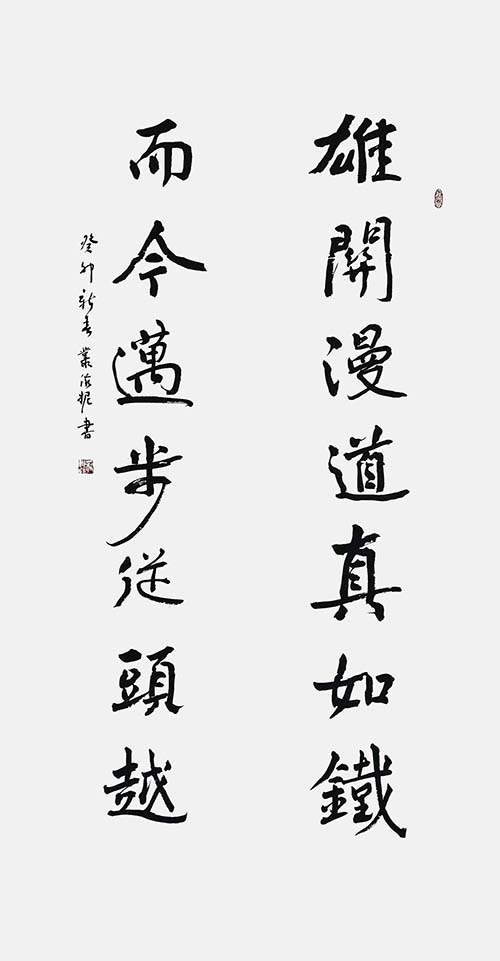 雄關漫道真如鐵
而今邁步從頭越
癸卯新春 叢海妮書